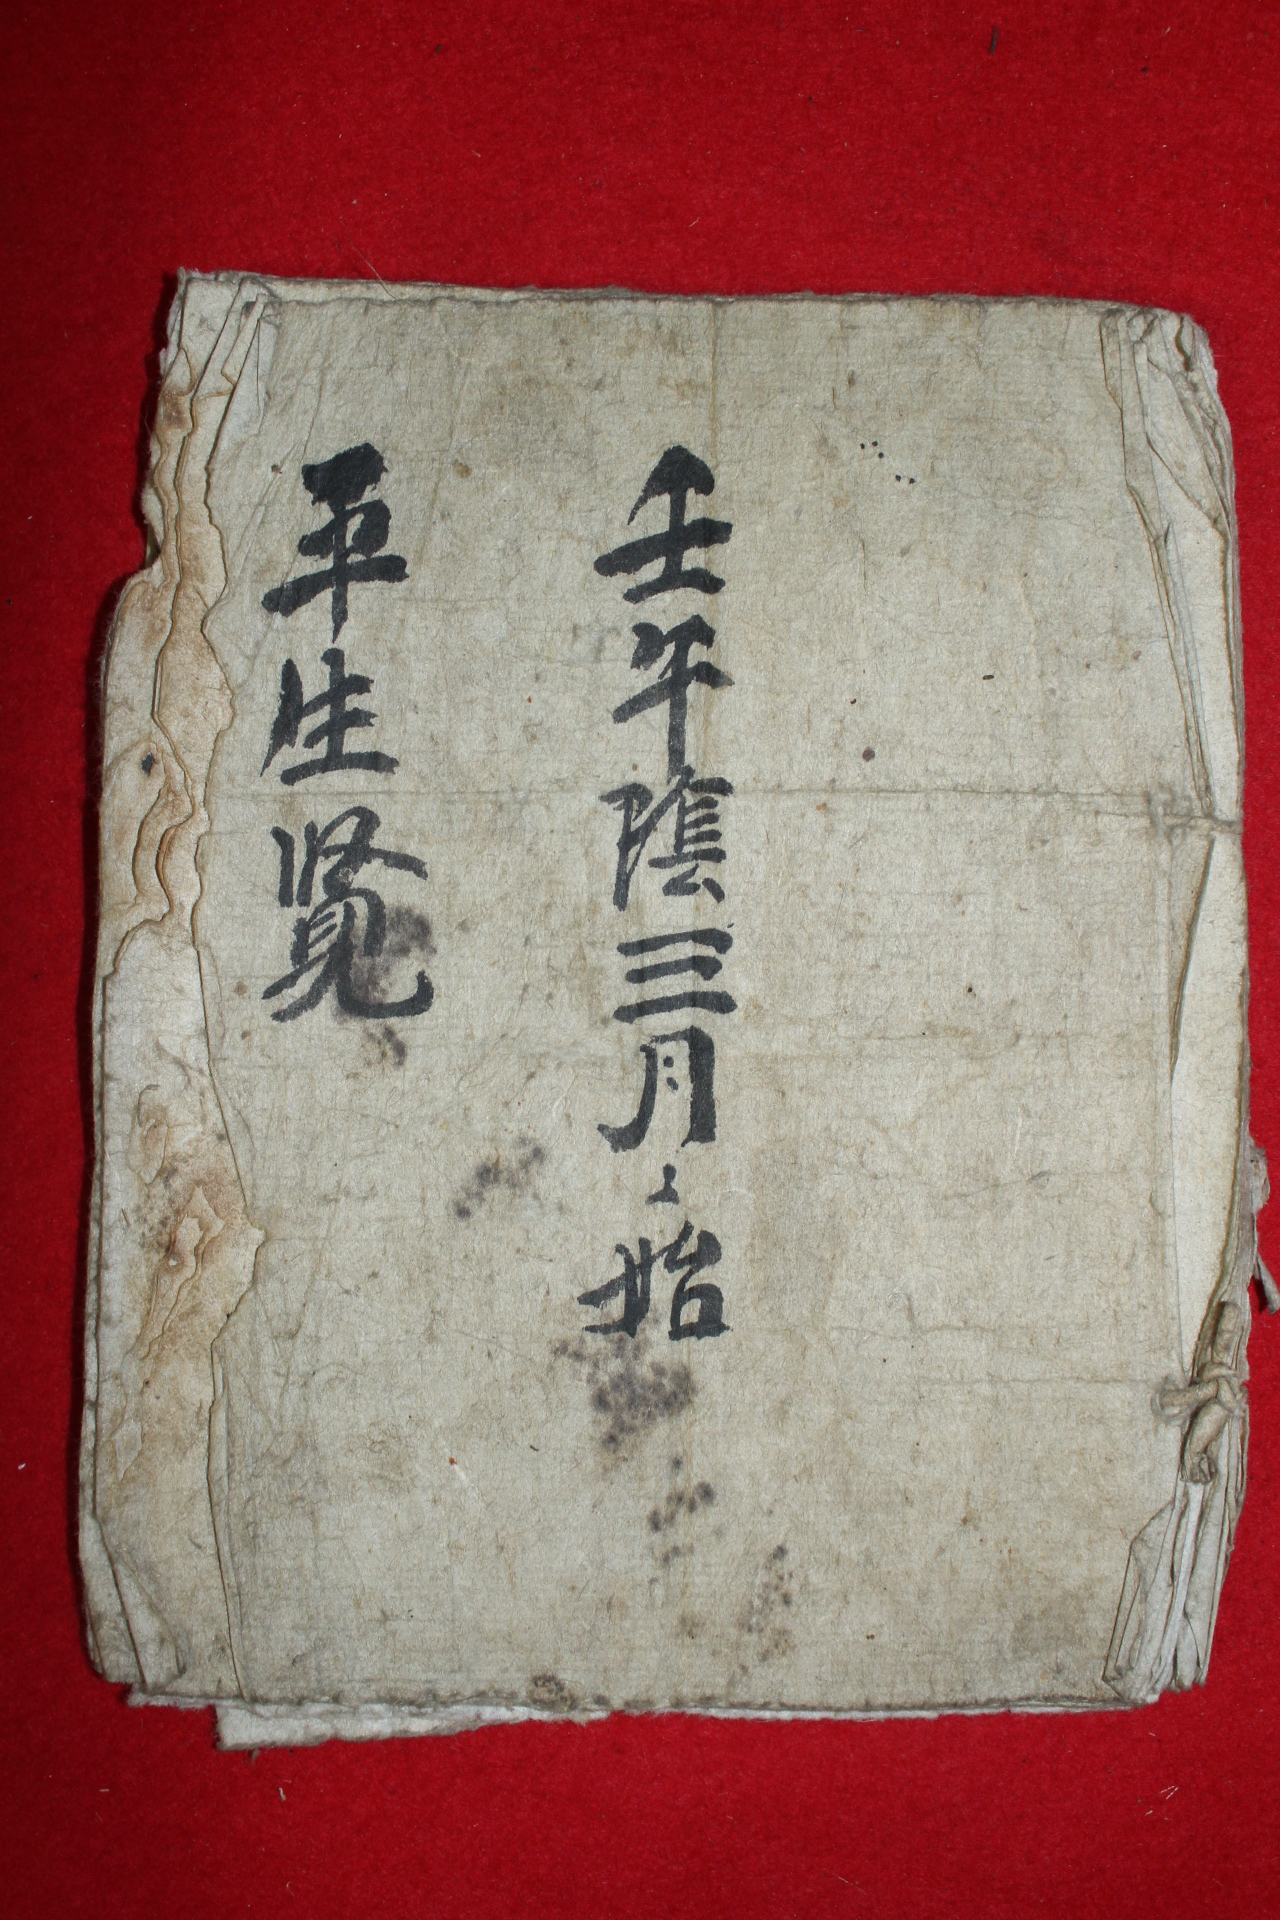 壬午陰三月〻始
平生覽